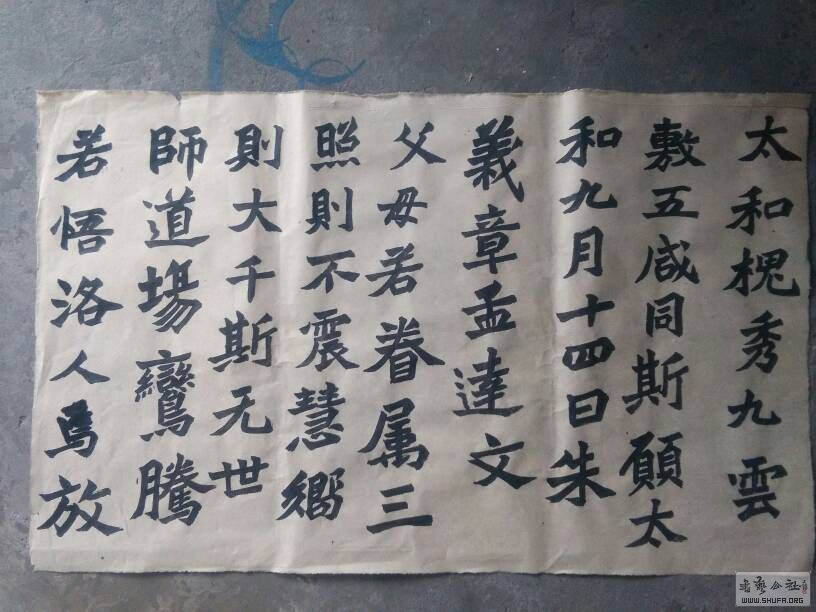 太和槐秀九雲
敷五咸同斯願太
和九月十四日朱
義章孟達文
父母若眷属三
照則不震慧嚮
則大千斯无世
師道場鸞騰
若悟洛人焉放
書藝公社
WWW.SHUFA.ORG